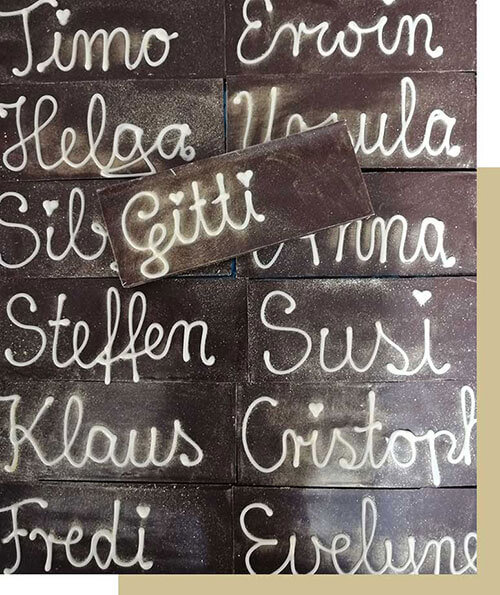 Timo Erwin
Helga Ursula
Gitti
Anna
Steffen Susi
Klaus Cristoph
Fredi Evelyne